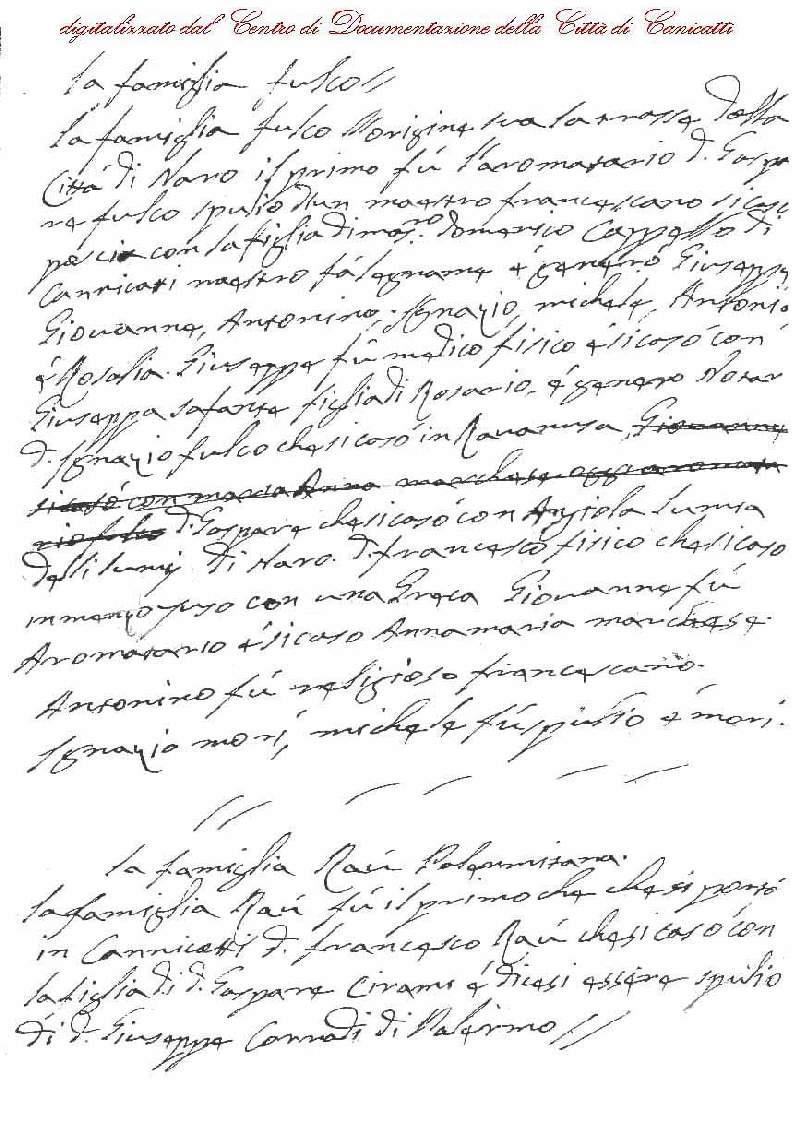 digitalizzato dal Centro di Documentazione della Città di Canicattì
la famiglia fulco //
la famiglia fulco l'origine sua la trasse della
Città di Naro il primo fú l'aromatario d. Gaspa
re fulco spulio d'un maestro francescano si casò
poscia con la figlia di mas.ro domenico Cappello di
Cannicati maestro falegname é generó Giuseppe
Giovanne, Antonino, Ignazio, michele, Antonio
é Rosalia. Giuseppe fú medico fisico é si casó con
Giuseppa safante figlia di Rosario, é genero Notar
d. Ignazio fulco che si casó in Ravanusa, Giovanne
si casó con maria Anna marchese oggi aromata
rio fulco d. Gaspare che si casó con Angiola Lumia
delli lumij di Naro. d. francesco fisico che si casò
in menzojuso con una Greca Giovanne fú
Aromatario é si caso Annamaria marchese.
Antonino fú religioso francescano.
Ignazio morí, michele fú spulio é morí.
la famiglia Raú Palermitana.
la famiglia Raú fú il primo che che si portó
in Cannicatti d. francesco Raú che si casó con
la figlia di d. Gaspare Cirami é dicesi essere spulio
di d. Giuseppe Corradi di Palermo //